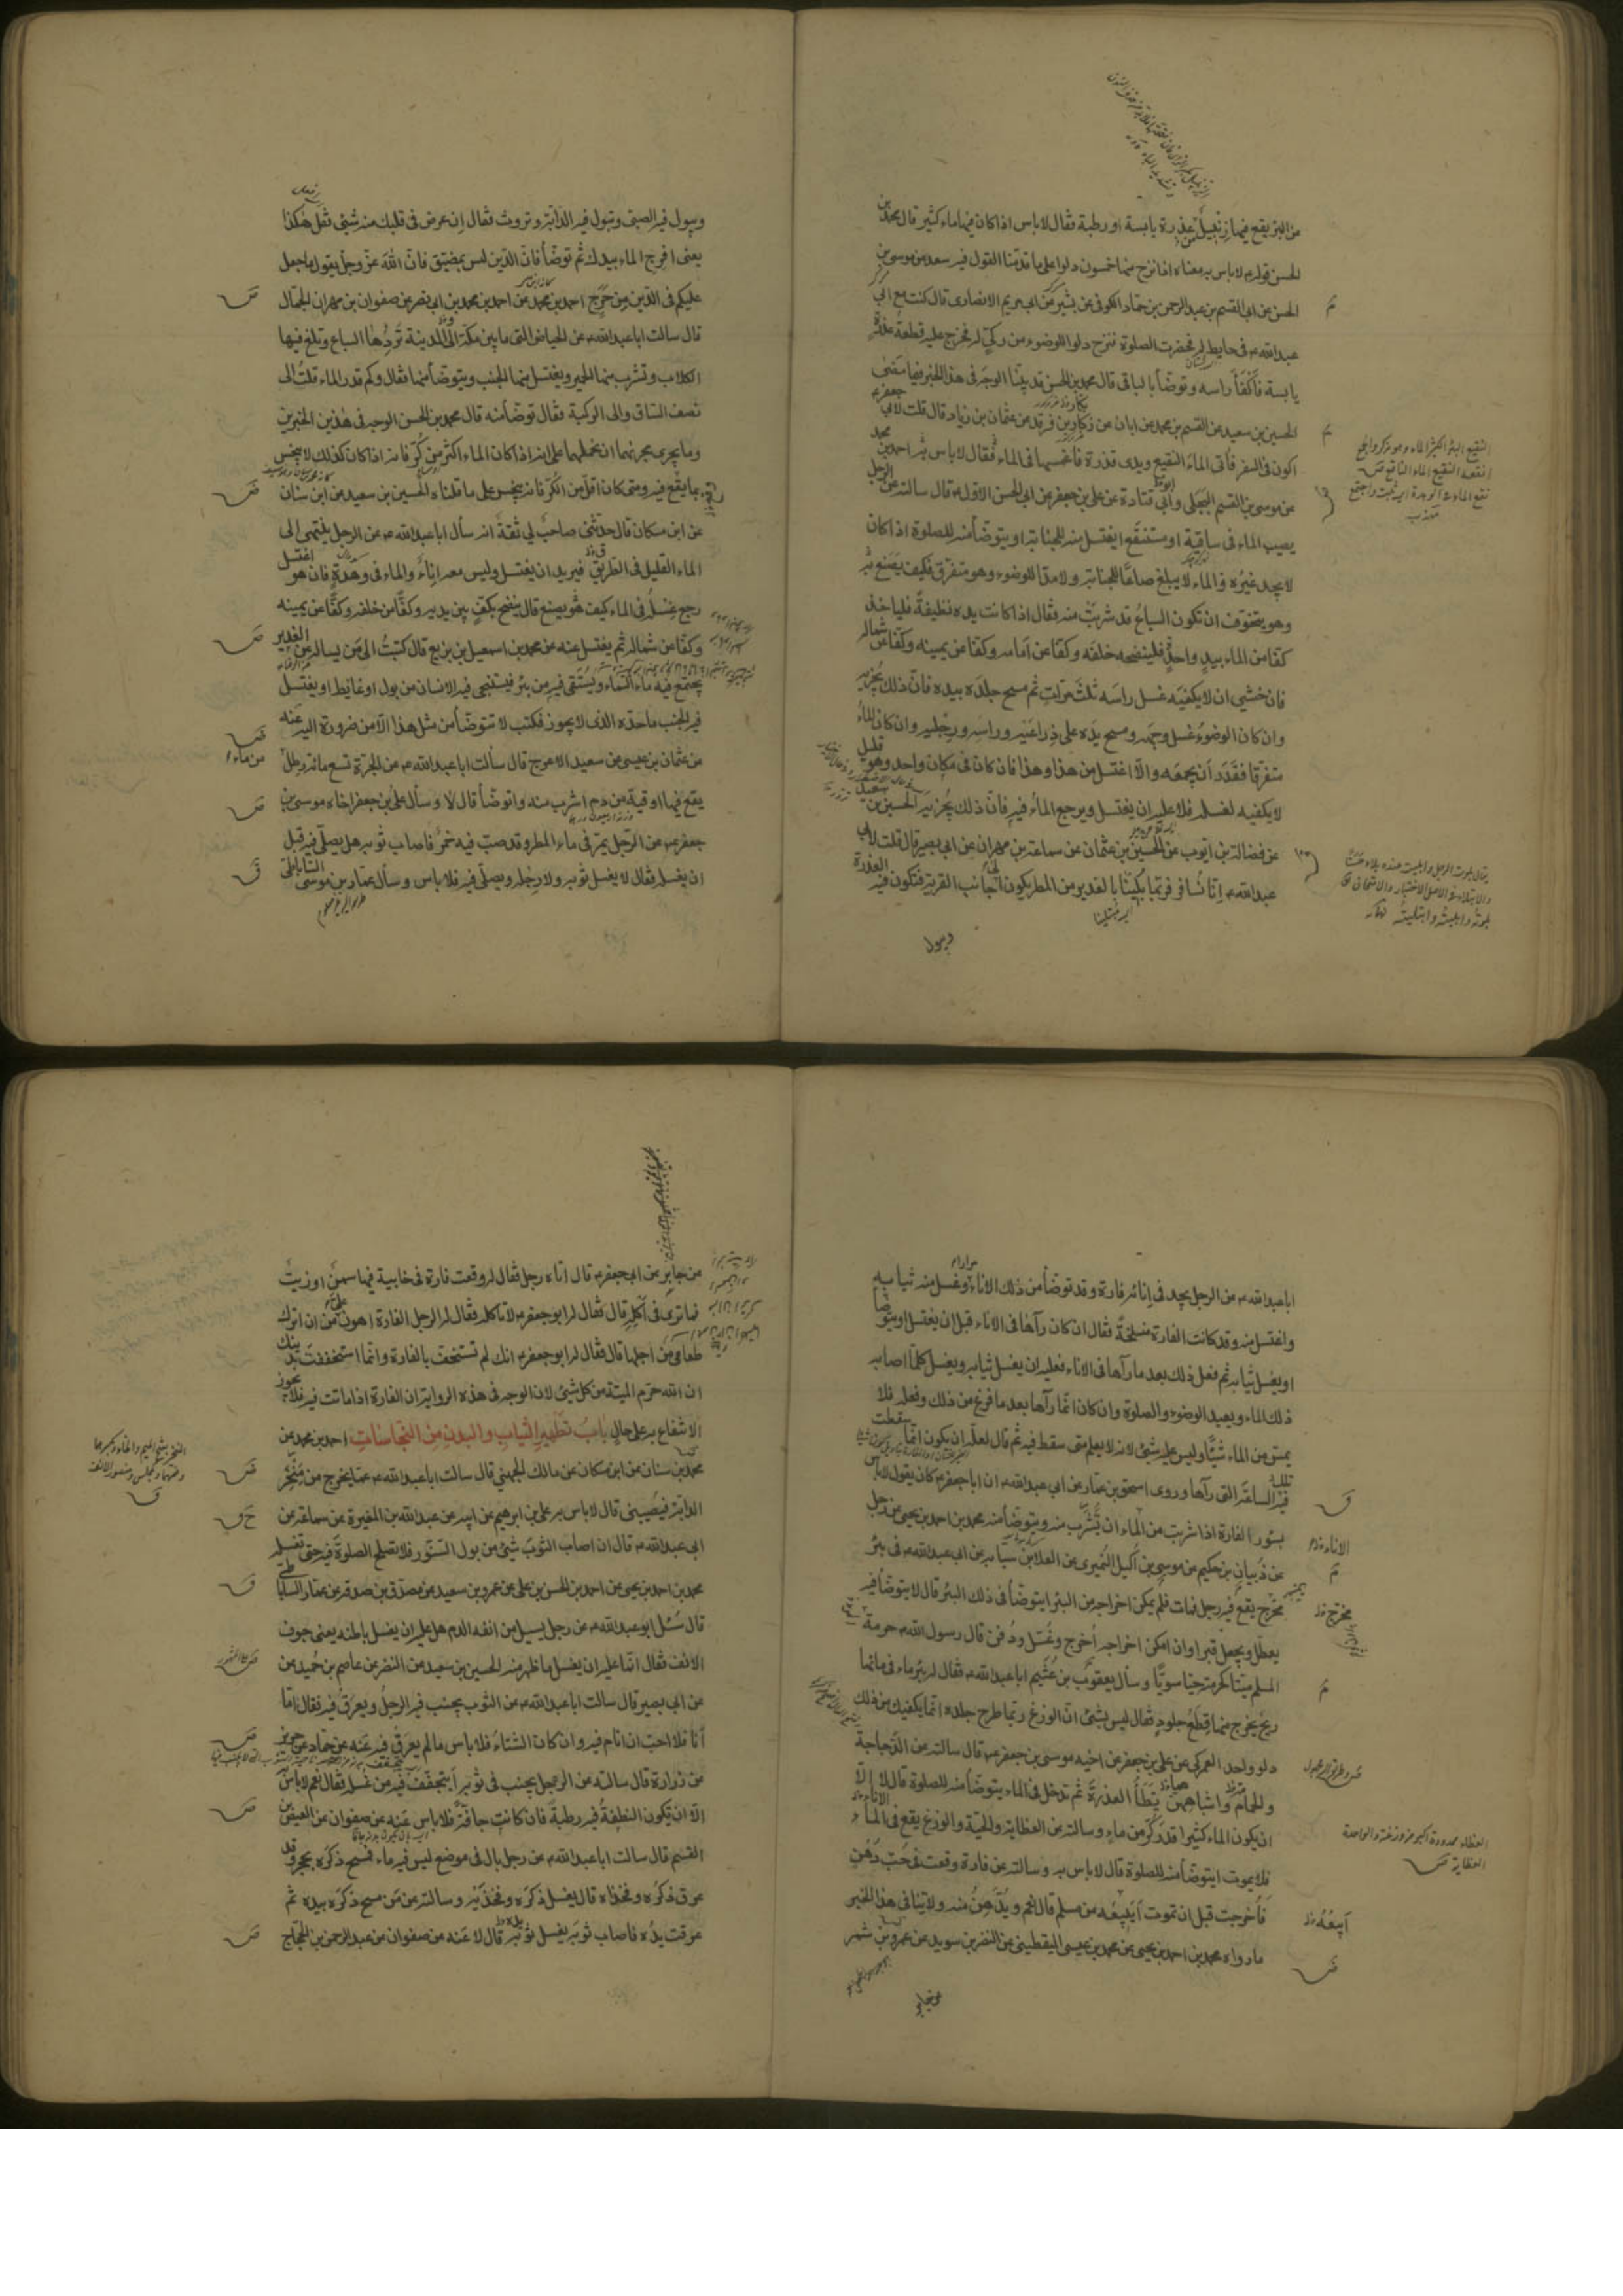 من البئر يقع فيها زنبيل عذرة يابسة او رطبة فقال لا باس اذا كان فيها ماء كثير قال محمد بن
الحسن قوله لا باس به معناه اذا نزح منها خمسون دلوا على ما قدمنا القول فيه سعد عن موسى بن
الحسن عن ابى القسم بن عبد الرحمن بن حماد الكوفى عن بشير عن ابى مريم الانصارى قال كنت مع ابى
عبد الله ع فى حايط له فحضرت الصلوة فنزح دلوا للوضوء من ركى له فخرج عليه قطعة عذرة
يابسة فاكفأ راسه وتوضأ بالباقى قال محمد بن الحسن قد بينا الوجه فى هذا الخبر فيما مضى
الحسين بن سعيد عن القسم بن محمد عن ابان عن زكار بن فرقد عن عثمان بن زياد قال قلت لابى جعفر ع
اكون فى السفر فأتى الماء النقيع ويدى قذرة فاغمسها فى الماء فقال لا باس به احمد بن محمد
عن موسى بن القسم البجلى وابى قتادة عن على بن جعفر عن ابى الحسن الاول ع قال سالته عن الرجل
يصيب الماء فى ساقية او مستنقع ايغتسل منه للجنابة او يتوضأ منه للصلوة اذا كان
لا يجد غيره والماء لا يبلغ صاعا للجنابة ولا مدا للوضوء وهو متفرق فكيف يصنع به
وهو يتخوف ان تكون السباع قد شربت منه فقال اذا كانت يده نظيفة فلياخذ
كفا من الماء بيد واحدة فلينضحه خلفه وكفا عن امامه وكفا عن يمينه وكفا عن شماله
فان خشى ان لا يكفيه غسل راسه ثلث مرات ثم مسح جلده بيده فان ذلك يجزيه
وان كان الوضوء غسل وجهه ومسح يده على ذراعيه وراسه ورجليه وان كان الماء
متفرقا فقدر ان يجمعه والا اغتسل من هذا وهذا فان كان فى مكان واحد وهو قليل
لا يكفيه لغسله فلا عليه ان يغتسل ويرجع الماء فيه فان ذلك يجزيه الحسين بن سعيد
عن فضالة بن ايوب عن الحسين بن عثمان عن سماعة بن مهران عن ابى بصير قال قلت لابى
عبد الله ع انا نسافر فربما بلينا بالغدير من المطر يكون الى جانب القرية فتكون فيه العذرة
ويبول
ويبول فيه الصبى وتبول فيه الدابة وتروث فقال ان عرض فى قلبك منه شئ فقل هكذا
يعنى افرج الماء بيدك ثم توضأ فان الدين ليس بمضيق فان الله عز وجل يقول ما جعل
عليكم فى الدين من حرج احمد بن محمد عن احمد بن محمد بن ابى نصر عن صفوان بن مهران الجمال
قال سالت ابا عبد الله ع عن الحياض التى ما بين مكة الى المدينة تردها السباع وتلغ فيها
الكلاب وتشرب منها الحمير ويغتسل منها الجنب ويتوضأ منها فقال وكم قدر الماء قلت الى
نصف الساق والى الركبة فقال توضأ منه قال محمد بن الحسن الوجه فى هذين الخبرين
وما يجرى مجريهما ان نحملهما على انه اذا كان الماء اكثر من كر فانه اذا كان كذلك لا ينجس
بما يقع فيه ومتى كان اقل من الكر فانه ينجس على ما قلناه الحسين بن سعيد عن ابن سنان
عن ابن مسكان قال حدثنى صاحب لى ثقة انه سأل ابا عبد الله ع عن الرجل ينتهى الى
الماء القليل فى الطريق فيريد ان يغتسل وليس معه اناء والماء فى وهدة فان هو اغتسل
رجع غسله فى الماء كيف يصنع قال ينضح بكف بين يديه وكفا من خلفه وكفا عن يمينه
وكفا عن شماله ثم يغتسل عنه عن محمد بن اسمعيل بن بزيع قال كتبت الى من يساله عن الغدير
يجتمع فيه ماء السماء ويستقى فيه من بئر فيستنجى فيه الانسان من بول او غايط او يغتسل
فيه الجنب ما حده الذى لا يجوز فكتب لا تتوضأ من مثل هذا الا من ضرورة اليه عنه
عن عثمان بن عيسى عن سعيد الاعرج قال سالت ابا عبد الله ع عن الجرة تسع مائة رطل من ماء
يقع فيها اوقية من دم اشرب منه واتوضأ قال لا وسأل على بن جعفر اخاه موسى بن
جعفر ع عن الرجل يمر فى ماء المطر وقد صب فيه خمر فاصاب ثوبه هل يصلى فيه قبل
ان يغسله فقال لا يغسل ثوبه ولا رجله ويصلى فيه فلا باس وسأل عمار بن موسى الساباطى
ابا عبد الله ع عن الرجل يجد فى انائه فارة وقد توضأ من ذلك الاناء مرارا وغسل منه ثيابه
واغتسل منه وقد كانت الفارة منسلخة فقال ان كان رآها فى الاناء قبل ان يغتسل او يتوضأ
او يغسل ثيابه ثم فعل ذلك بعد ما رآها فى الاناء فعليه ان يغسل ثيابه ويغسل كلما اصابه
ذلك الماء ويعيد الوضوء والصلوة وان كان انما رآها بعد ما فرغ من ذلك وفعله فلا
يمس من الماء شيئا وليس عليه شئ لانه لا يعلم متى سقط فيه ثم قال لعله ان يكون انما سقطت
فيه تلك الساعة التى رآها وروى اسحق بن عمار عن ابى عبد الله ع ان ابا جعفر ع كان يقول لا باس
بسؤر الفارة اذا شربت من الماء ان تشرب منه ويتوضأ منه محمد بن احمد بن يحيى عن رجل
عن ذبيان بن حكيم عن موسى بن اكيل النميرى عن العلا بن سيابه عن ابى عبد الله ع فى بئر
مخرج يقع فيه رجل فمات فلم يمكن اخراجه من البئر ايتوضأ فى ذلك البئر قال لا يتوضأ فيه
يعطل ويجعل قبرا وان امكن اخراجه اخرج وغسل ودفن قال رسول الله ص حرمة
المسلم ميتا كحرمته حيا سويا وسأل يعقوب بن عثيم ابا عبد الله ع فقال له بئر ماء فى مائها
ريح يخرج منها قطع جلود فقال ليس بشئ ان الوزغ ربما طرح جلده انما يكفيك من ذلك
دلو واحد العمركى عن على بن جعفر عن اخيه موسى بن جعفر ع قال سالته عن الدجاجة
والحمام واشباههن تطأ العذرة ثم تدخل فى الماء يتوضأ منه للصلوة قال لا الا
ان يكون الماء كثيرا قدر كر من ماء وسالته عن العظاية والحية والوزغ يقع فى الماء
فلا يموت ايتوضأ منه للصلوة قال لا باس به وسالته عن فارة وقعت فى حب دهن
فاخرجت قبل ان تموت ايبيعه من مسلم قال نعم ويدهن منه ولا ينافى هذا الخبر
ما رواه محمد بن احمد بن يحيى عن محمد بن عيسى اليقطينى عن النضر بن سويد عن عمرو بن شمر
عن جابر
عن جابر عن ابى جعفر ع قال اتاه رجل فقال له وقعت فارة فى خابية فيها سمن او زيت
فما ترى فى اكله قال فقال له ابو جعفر ع لا تاكله فقال له الرجل الفارة اهون على من ان اترك
طعامى من اجلها قال فقال له ابو جعفر ع انك لم تستخف بالفارة وانما استخففت بدينك
ان الله حرم الميتة من كل شئ لان الوجه فى هذه الرواية ان الفارة اذا ماتت فيه فلا يجوز
الانتفاع به على حال باب تطهير الثياب والبدن من النجاسات احمد بن محمد عن
محمد بن سنان عن ابن مسكان عن مالك الجهنى قال سالت ابا عبد الله ع عما يخرج من منخر
الدابة فيصيبنى قال لا باس به على بن ابرهيم عن ابيه عن عبد الله بن المغيرة عن سماعة عن
ابى عبد الله ع قال ان اصاب الثوب شئ من بول السنور فلا يصلح الصلوة فيه حتى تغسله
محمد بن احمد بن يحيى عن احمد بن الحسن بن على عن عمرو بن سعيد عن مصدق بن صدقة عن عمار الساباطى
قال سئل ابو عبد الله ع عن رجل يسيل من انفه الدم هل عليه ان يغسل باطنه يعنى جوف
الانف فقال انما عليه ان يغسل ما ظهر منه الحسين بن سعيد عن النضر عن عاصم بن حميد عن
عن ابى بصير قال سالت ابا عبد الله ع عن الثوب يجنب فيه الرجل ويعرق فيه فقال اما
أنا فلا احب ان انام فيه وان كان الشتاء فلا باس ما لم يعرق فيه عنه عن حماد عن حريز
عن زرارة قال سالته عن الرجل يجنب فى ثوبه أيتجفف فيه من غسله فقال نعم لا باس
الا ان تكون النطفة فيه رطبة فان كانت جافة فلا باس عنه عن صفوان عن العيص بن
القسم قال سالت ابا عبد الله ع عن رجل بال فى موضع ليس فيه ماء فمسح ذكره بحجر وقد
عرق ذكره وفخذاه قال يغسل ذكره وفخذيه وسالته عن من مسح ذكره بيده ثم
عرقت يده فاصاب ثوبه يغسل ثوبه قال لا عنه عن صفوان عن عبد الرحمن بن الحجاج